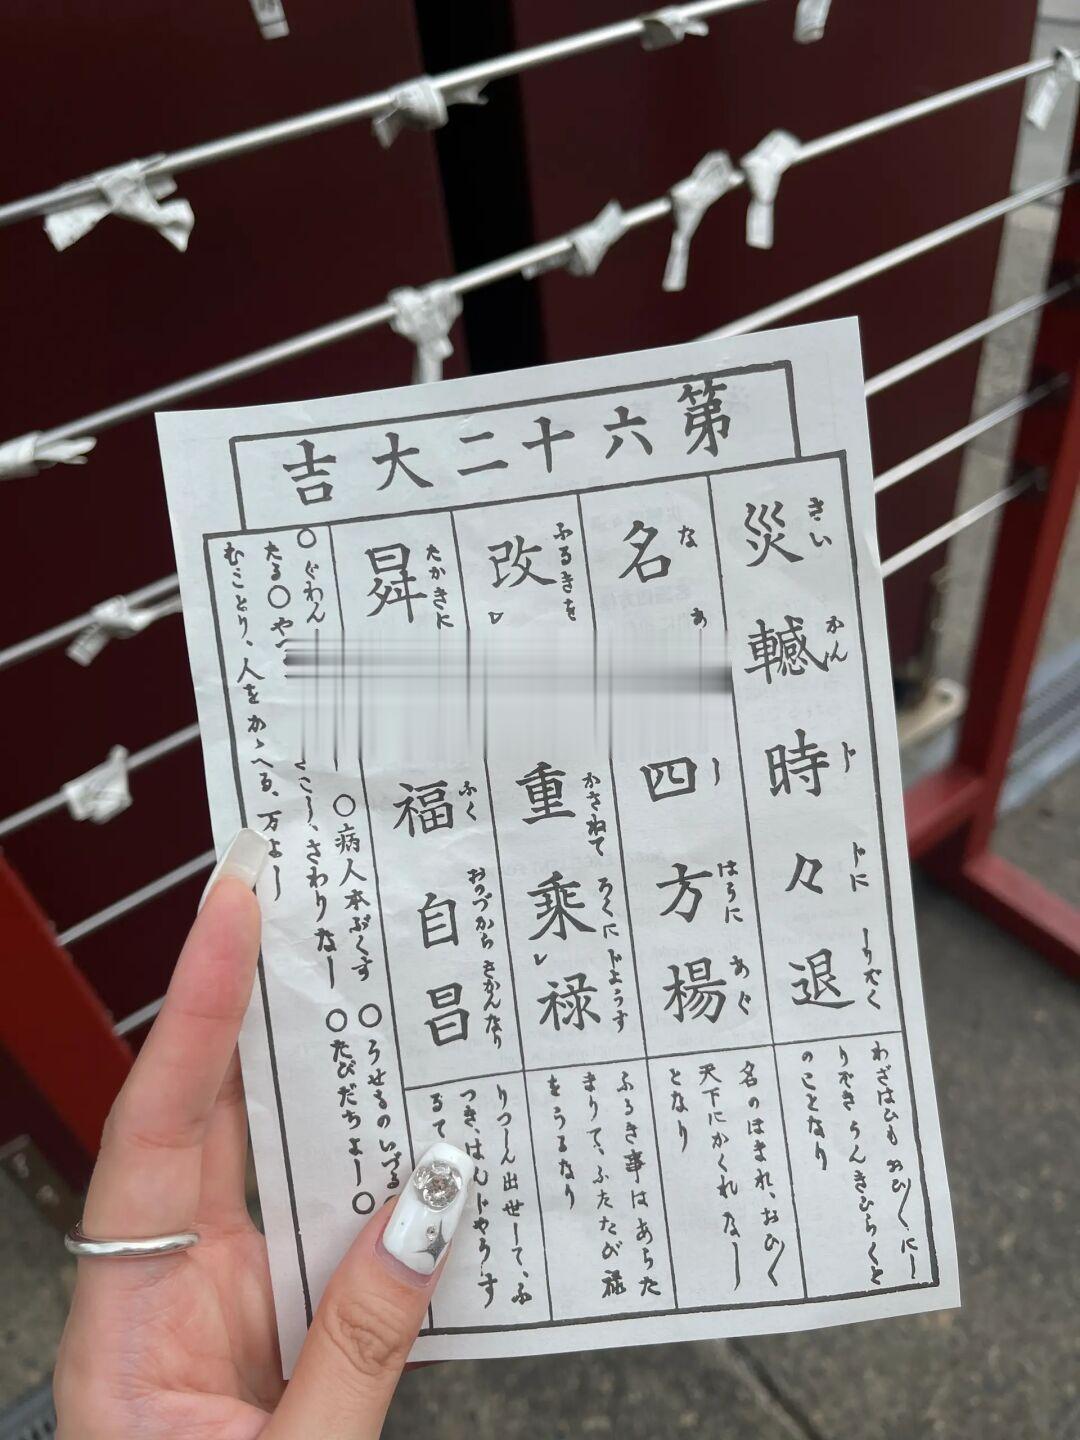 第六十二大吉
災轗時々退
さいかんじじにしりぞく
名 四方楊
な あ しほうにあぐ
改 重乗禄
ふるきを かさねてろくにじょうず
昇 福自昌
たかきに ふくおのづからさかんなり
わざはひも おひ〳〵にし
りぞき うんきひらくと
のことなり
名のほまれ、おひ〳〵
天下にかくれなし
となり
ふるき事はあらた
まりて、ふたたび禄
をうるなり
りつしん出世して、ふ
つき、はんじやうす
るて
○病人本ぷくす ○うせものいづる
○ぐわん さこし、さわりなし ○たびだちよし ○
たる ○や
むことり、人をかゝへる、万よし